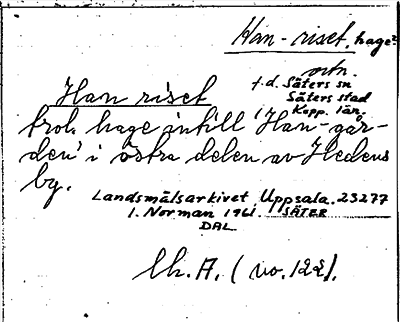 Han-riset, hage?
ortn.
f.d. Säters sn
Säters stad
Kopp. län.
Han riset
trol. hage intill 'Han-går-
den' i östra delen av Hedens
by.
Landsmålsarkivet Uppsala. 23277
I. Norman 1961. SÄTER
DAL
lh. A. (no. 122).